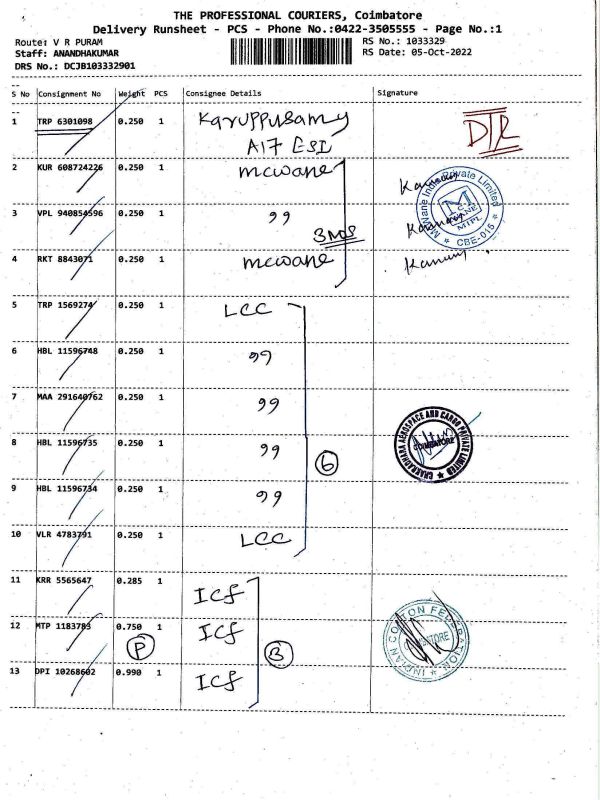 THE PROFESSIONAL COURIERS, Coimbatore
Delivery Runsheet - PCS - Phone No.:0422-3505555 - Page No.:1
Route: V R PURAM
RS No.: 1033329
Staff: ANANDHAKUMAR
RS Date: 05-Oct-2022
DRS No.: DCJB103332901
S No Consignment No Weight PCS Consignee Details Signature
1 TRP 6301098 0.250 1 Karuppusamy
A17 ESI
DTR
2 KUR 608724226 0.250 1 mcwane
3 VPL 940854596 0.250 1 99
3 NOS
4 RKT 8843071 0.250 1 mcwane
McWane India Private Limited
MIPL
CBE-015
5 TRP 1569274 0.250 1 LCC
6 HBL 11596748 0.250 1 99
7 MAA 291640762 0.250 1 99
8 HBL 11596735 0.250 1 99
6
CHAKRADHARA AEROSPACE AND CARGO PRIVATE LIMITED
COIMBATORE
9 HBL 11596734 0.250 1 99
10 VLR 4783791 0.250 1 LCC
11 KRR 5565647 0.285 1 ICF
12 MTP 1183783 0.750 1 ICF
P
3
INDIAN COTTON FEDERATION
13 DPI 10268602 0.990 1 ICF